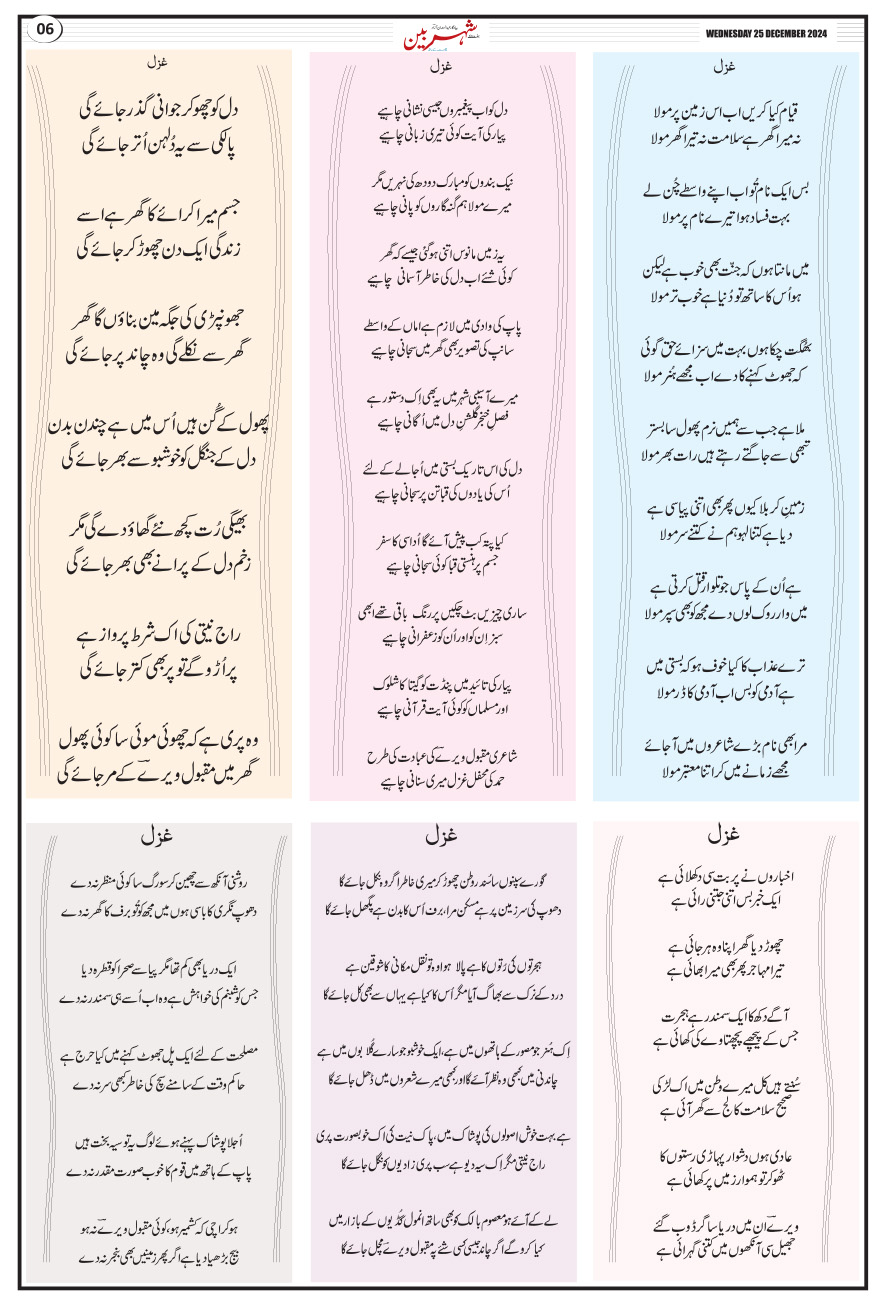 06
شہربین
WEDNESDAY 25 DECEMBER 2024
غزل
قیام کیا کریں اب اس زمین پر مولا
نہ میرا گھر ہے سلامت نہ تیرا گھر مولا
بس ایک نام تُو اب اپنے واسطے چُن لے
بہت فساد ہوا تیرے نام پر مولا
میں مانتا ہوں کہ جنّت بھی خوب ہے لیکن
ہو اُس کا ساتھ تو دُنیا ہے خوب تر مولا
بھگت چکا ہوں بہت میں سزائے حق گوئی
کہ جھوٹ کہنے کا دے اب مجھے ہُنر مولا
ملا ہے جب سے ہمیں نرم پھول سا بستر
تبھی سے جاگتے رہتے ہیں رات بھر مولا
زمینِ کربلا کیوں پھر بھی اتنی پیاسی ہے
دیا ہے کتنا لہو ہم نے کتنے سر مولا
ہے اُن کے پاس جو تلوار قتل کرتی ہے
میں وار روک لوں دے مجھ کو بھی سپر مولا
ترے عذاب کا کیا خوف ہو کہ بستی میں
ہے آدمی کو بس اب آدمی کا ڈر مولا
مرا بھی نام بڑے شاعروں میں آ جائے
مجھے زمانے میں کر اتنا معتبر مولا
غزل
دل کو اب پیغمبروں جیسی نشانی چاہیے
پیار کی آیت کوئی تیری زبانی چاہیے
نیک بندوں کو مبارک دودھ کی نہریں مگر
میرے مولا ہم گنہگاروں کو پانی چاہیے
یہ زمیں مانوس اتنی ہو گئی جیسے کہ گھر
کوئی شئے اب دل کی خاطر آسمانی چاہیے
پاپ کی وادی میں لازم ہے اماں کے واسطے
سانپ کی تصویر بھی گھر میں سجانی چاہیے
میرے آسیبی شہر میں یہ بھی اِک دستور ہے
فصلِ خنجر گلشنِ دل میں اُگانی چاہیے
دل کی اس تاریک بستی میں اُجالے کے لئے
اُس کی یادوں کی قبا تن پر سجانی چاہیے
کیا پتہ کب پیش آئے گا اُداسی کا سفر
جسم پر ہنستی قبا کوئی سجانی چاہیے
ساری چیزیں بٹ چکیں پر رنگ باقی تھے ابھی
سبز اِن کو اور اُن کو زعفرانی چاہیے
پیار کی تائید میں پنڈت کو گیتا کا شلوک
اور مسلماں کو کوئی آیت قرآنی چاہیے
شاعری مقبول ویرے کی عبادت کی طرح
حمد کی محفل غزل میری سنانی چاہیے
غزل
دل کو چھو کر جوانی گذر جائے گی
پالکی سے یہ دُلہن اُتر جائے گی
جسم میرا کرائے کا گھر ہے اسے
زندگی ایک دن چھوڑ کر جائے گی
جھونپڑی کی جگہ مین بناؤں گا گھر
گھر سے نکلے گی وہ چاند پر جائے گی
پھول کے گُن ہیں اُس میں ہے چندن بدن
دل کے جنگل کو خوشبو سے بھر جائے گی
بھیگی رُت کچھ نئے گھاؤ دے گی مگر
زخم دل کے پرانے بھی بھر جائے گی
راج نیتی کی اک شرط پرواز ہے
پر اُڑوگے تو پر بھی کتر جائے گی
وہ پری ہے کہ چھوئی موئی سا کوئی پھول
گھر میں مقبول ویرے کے مر جائے گی
غزل
اخباروں نے پربت سی دکھلائی ہے
ایک خبر بس اتنی جتنی رائی ہے
چھوڑ دیا گھر اپنا وہ ہر جائی ہے
تیرا مہاجر پھر بھی میرا بھائی ہے
آگے دکھ کا ایک سمندر ہے ہجرت
جس کے پیچھے پچھتاوے کی کھائی ہے
سُنتے ہیں کل میرے وطن میں اک لڑکی
صحیح سلامت کالج سے گھر آئی ہے
عادی ہوں دشوار پہاڑی رستوں کا
ٹھوکر تو ہموار زمیں پر کھائی ہے
ویرے ان میں دریا ساگر ڈوب گئے
جھیل سی آنکھوں میں کتنی گہرائی ہے
غزل
گورے سپنوں سا سُندر وطن چھوڑ کر میری خاطر اگر وہ نکل جائے گا
دھوپ کی سرزمین پر ہے مسکن مرا، برف اُس کا بدن ہے پگھل جائے گا
ہجرتوں کی رُتوں کا ہے پالا ہوا وہ تو نقل مکانی کا شوقین ہے
درد کے نرک سے بھاگ آیا مگر اُس کا کیا ہے یہاں سے بھی کل جائے گا
اِک ہُنر جو مصور کے ہاتھوں میں ہے، ایک خوشبو جو سارے گلابوں میں ہے
چاندنی میں کبھی وہ نظر آئے گا اور کبھی میرے شعروں میں ڈھل جائے گا
ہے بہت خوش اصولوں کی پوشاک میں، پاک نیت کی اک خوبصورت پری
راج نیتی مگر اِک سیہ دیو ہے سب پری زادیوں کو نگل جائے گا
لے کے آئے ہو معصوم بالک کو بھی ساتھ انمول گُڈیوں کے بازار میں
کیا کروگے اگر چاند جیسی کسی شئے پہ مقبول ویرے مچل جائے گا
غزل
روشنی آنکھ سے چھین کر سورگ سا کوئی منظر نہ دے
دھوپ نگری کا باسی ہوں میں مجھ کو تُو برف کا گھر نہ دے
ایک دریا بھی کم تھا مگر پیاسے صحرا کو قطرہ دیا
جس کو شبنم کی خواہش ہے وہ اب اُسے ہی سمندر نہ دے
مصلحت کے لئے ایک پل جھوٹ کہنے میں کیا حرج ہے
حاکمِ وقت کے سامنے سچ کی خاطر کبھی سر نہ دے
اُجلا پوشاک پہنے ہوئے لوگ یہ تو سیہ بخت ہیں
پاپ کے ہاتھ میں قوم کا خوب صورت مقدر نہ دے
ہو کراچی کہ کشمیر ہو، کوئی مقبول ویرے نہ ہو
بیج بڑھیا دیا ہے اگر پھر زمینیں بھی بنجر نہ دے